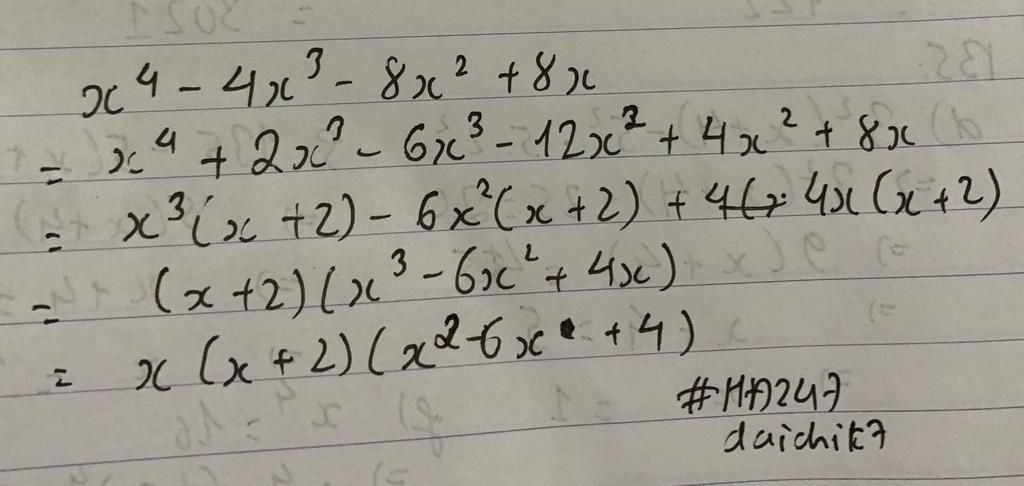 x⁴ - 4x³ - 8x² + 8x
= x⁴ + 2x³ - 6x³ - 12x² + 4x² + 8x
= x³(x + 2) - 6x²(x + 2) + 4x(x + 2)
= (x + 2)(x³ - 6x² + 4x)
= x(x + 2)(x² - 6x + 4)
daichik7